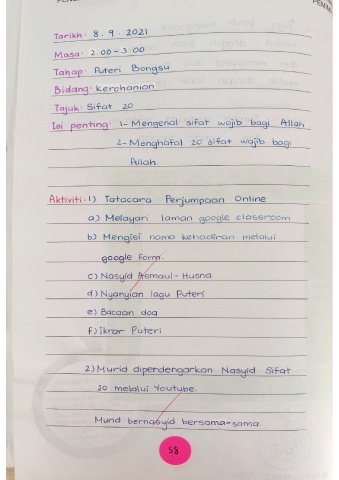 Tarikh: 8.9.2021
Masa: 2.00-3.00
Tahap: Puteri Bongsu
Bidang: Kerohanian
Tajuk: Sifat 20
Isi penting: 1- Mengenal sifat wajib bagi Allah
2- Menghafal 20 sifat wajib bagi
Allah.
Aktiviti: 1) Tatacara Perjumpaan Online
a) Melayari laman google classroom
b) Mengisi nama kehadiran melalui
google form.
c) Nasyid Asmaul-Husna
d) Nyanyian lagu Puteri
e) Bacaan doa
f) Ikrar Puteri
2) Murid diperdengarkan Nasyid Sifat
20 melalui Youtube.
Murid bernasyid bersama-sama.
58